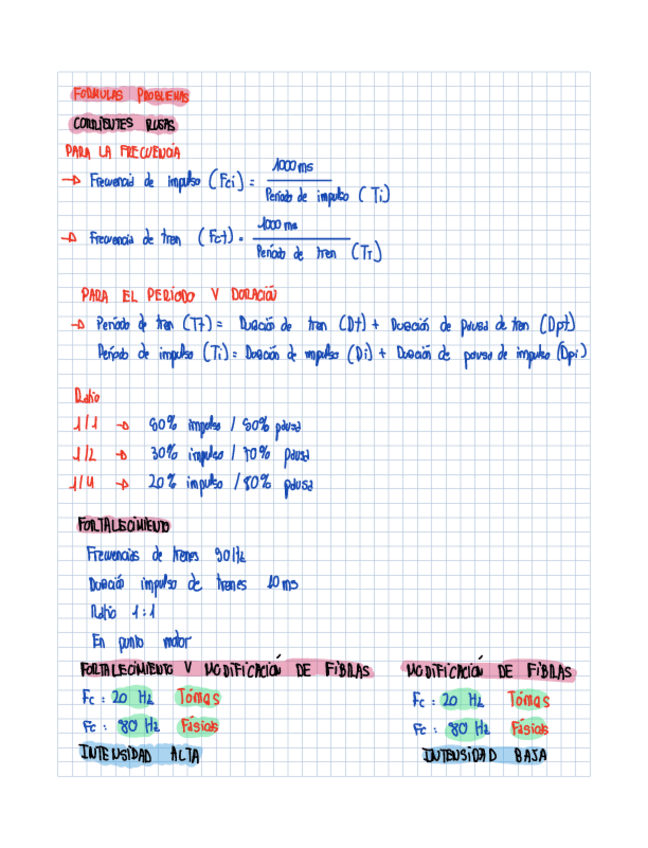 FORMULAS PROBLEMAS
CORRIENTES RUSAS
PARA LA FRECUENCIA
→ Frecuencia de impulso (Fci) = 1000 ms / Período de impulso (Ti)
→ Frecuencia de tren (Fct) = 1000 ms / Período de tren (TT)
PARA EL PERÍODO Y DURACIÓN
→ Período de tren (Tt) = Duración de tren (Dt) + Duración de pausa de tren (Dpt)
Período de impulso (Ti) = Duración de impulso (Di) + Duración de pausa de impulso (Dpi)
Ratio
1/1 → 50% impulso / 50% pausa
1/2 → 30% impulso / 70% pausa
1/4 → 20% impulso / 80% pausa
FORTALECIMIENTO
Frecuencias de trenes 50Hz
Duración impulso de trenes 10 ms
Ratio 1:1
En punto motor
FORTALECIMIENTO Y MODIFICACIÓN DE FIBRAS
Fc : 20 Hz Tónicas
Fc : 80 Hz Fásicas
INTENSIDAD ALTA
MODIFICACIÓN DE FIBRAS
Fc : 20 Hz Tónicas
Fc : 80 Hz Fásicas
INTENSIDAD BAJA